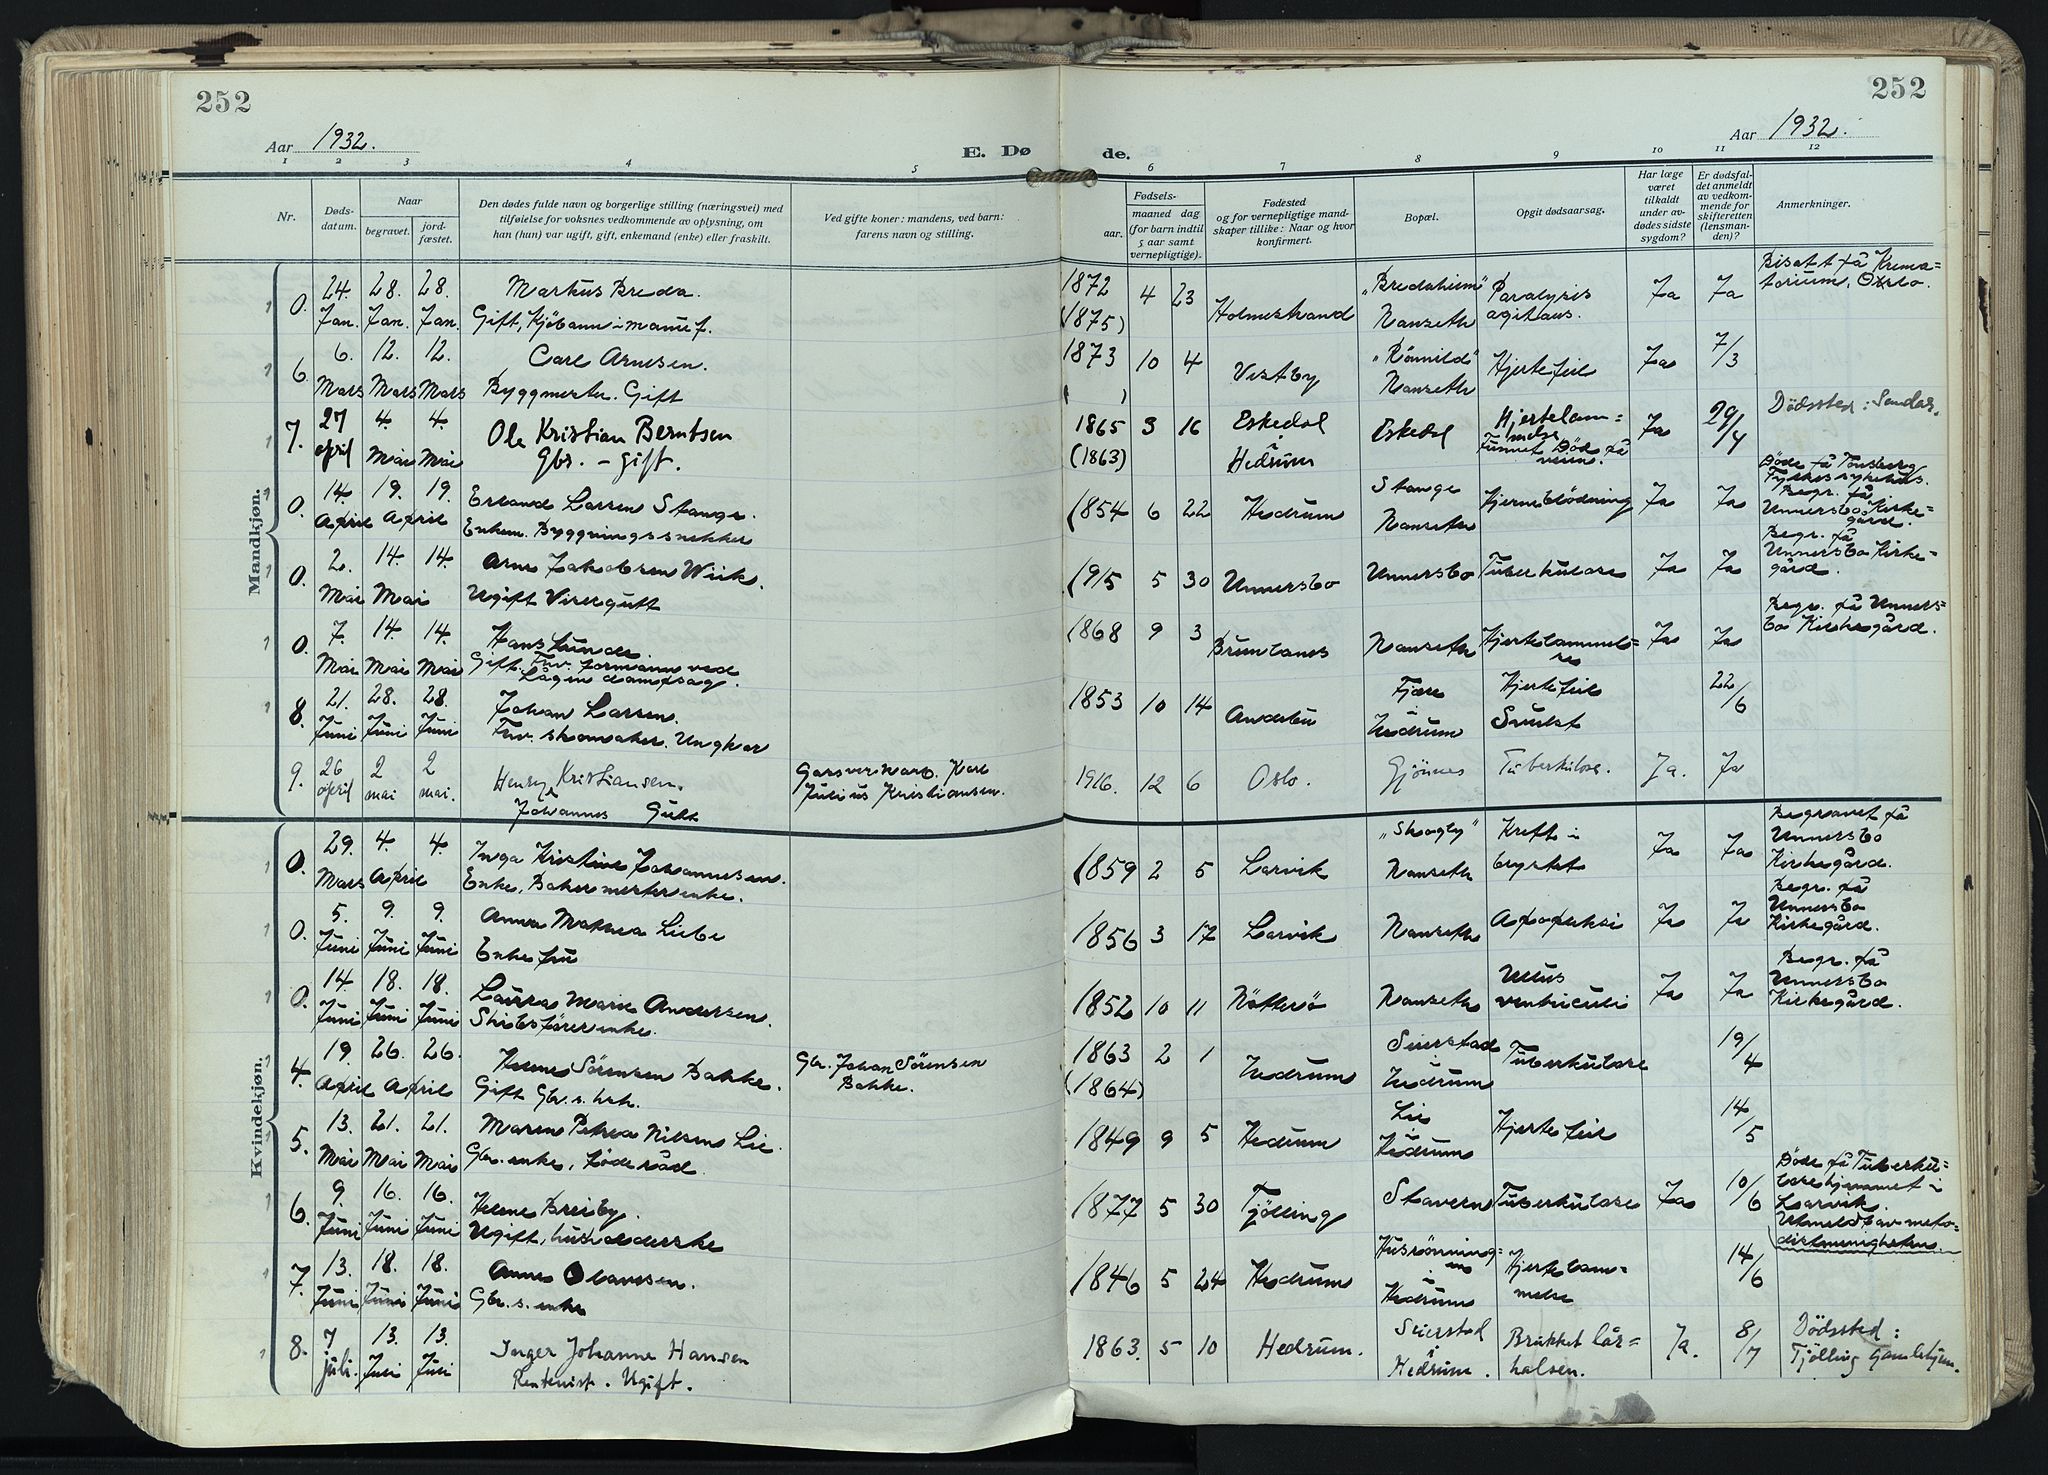 252
252
Aar 1932.
Aar 1932.
E. Dø
de.
1 2 3 4 5 6 7 8 9 10 11 12
Nr.
Døds-
datum.
Naar
begravet.
jord-
fæstet.
Den dødes fulde navn og borgerlige stilling (næringsvei) med
tilføielse for voksnes vedkommende av oplysning, om
han (hun) var ugift, gift, enkemand (enke) eller fraskilt.
Ved gifte koner: mandens, ved barn:
farens navn og stilling.
aar.
Fødsels-
maaned dag
(for barn indtil
5 aar samt
vernepligtige).
Fødested
og for vernepligtige mand-
skaper tillike: Naar og hvor
konfirmert.
Bopæl.
Opgit dødsaarsag.
Har læge
været
tilkaldt
under av-
dødes sidste
sygdom?
Er dødsfal-
det anmeldt
av vedkom-
mende for
skifteretten
(lensman-
den)?
Anmerkninger.
Mandkjøn.
0. 24. 28. 28. Markus Breda. 1872 4 23 Holmestrand "Bredaheim" Paralysis Ja Ja Bisatt på Krema=
Jan. Jan. Jan. Gift, (1875) Nanseth agitans. torium, Oslo.
6. 6. 12. 12. Carl Arnesen. 1873 10 4 Vestby Hjertefeil Ja 7/3
Mars Mars Mars Byggmester. Gift ( ) Nanseth
7. 27 4. 4. Ole Kristian Berntsen 1865 3 16 Eskedal Eskedal Hjertelam= Ja 29/4 Dödssted: Sandar.
april Mai Mai Gbr. - gift. (1863) i Hedrum melse Funnet Död på veien.
0. 14. 19. 19. Erland Larsen Stange. 1854 6 22 Hedrum Stange Hjerneblödning Ja Ja Döde på Tönsberg
April April Enkem. Byggningssnekker Nanseth Fylkessykehus.
Begr. på
Unnersbo Kirke=
gård.
0. 2. 14. 14. Arne Jakobsen Wiik. 1915 5 30 Unnersbo Unnersbo Tuberkulose Ja Ja Begr. på
Mai Mai Ugift Visergutt Unnersbo Kirke=
gård.
0. 7. 14. 14. Hans Lunde. 1868 9 3 Brunlanes Nanseth Hjertelammel= Ja Ja Begr. på Unners=
Mai Mai Mai Gift. Fhv. formann ved se bo Kirkegård.
Lågen dampsag.
8. 21. 28. 28. Johan Larsen. 1853 10 14 Andebu Fjære Hjertefeil 22/6
Juni Juni Juni Fhv. skomaker. Ungkar Hedrum
9. 26 2 2 Henry Kristiansen. Karl 1916. 12 6 Oslo. Gjönnes Tuberkulose. Ja. Ja
april mai mai. Johannes Gutt Julius Kristiansen.
Kvindekjøn.
0. 29. 4. 4. Inga Kristine Johannesen. 1859 2 5 Larvik "Skogly" Kreft i Ja Ja Begravet på
Mars April Enke, Bakermesterenke. Nanseth brystet Unnersbo
Kirkegård.
0. 5. 9. 9. Anna Mathea Liebe 1856 3 17 Larvik Nanseth Apopleksi Ja Ja Begr. på
Juni Juni Juni Enkefru Unnersbo
Kirkegård.
0. 14 18. 18. Laura Marie Andersen. 1852 10 11 Nötterö Nanseth Ulcus Ja Ja Begr. på
Juni Juni Juni Skibsförerenke. ventriculi Unnersbo
Kirkegård.
4. 19. 26. 26. Helene Sörensen Bakke. Gbr. Johan Sörensen 1863 2 1 Hedrum Seierstad Tuberkulose 19/4
April April Gift Gbr.s. hstr. Bakke. (1864) i Hedrum
5. 13. 21. 21. Maren Petrea Nilsen Lie. 1849 9 5 Hedrum Lie Hjertefeil 14/5
Mai Mai Mai Gbr. enke, föderåd. Hedrum
6. 9 16. 16. Helene Breiby. 1877 5 30 Tjölling Stavern Tuberkulose Ja 10/6 Döde på Tuberku=
Juni Juni Juni Ugift, husholderske losehjemmet i
Larvik.
Utmeldt av meto=
distmenigheten.
7. 13. 18. 18. Anne Olavesen. 1846 5 24 Hedrum i Hjertelam= 14/6
Juni Juni Juni Gbr.s. enke Hedrum melse
8. 7 13. 13. Inger Johanne Hansen 1863. 5 10 Hedrum. Seierstad Brukket lår= Ja. 8/7 Dödssted:
juli. Juli Juli Rentenist. Ugift. i Hedrum. halsen. Tjölling Gamlehjem.